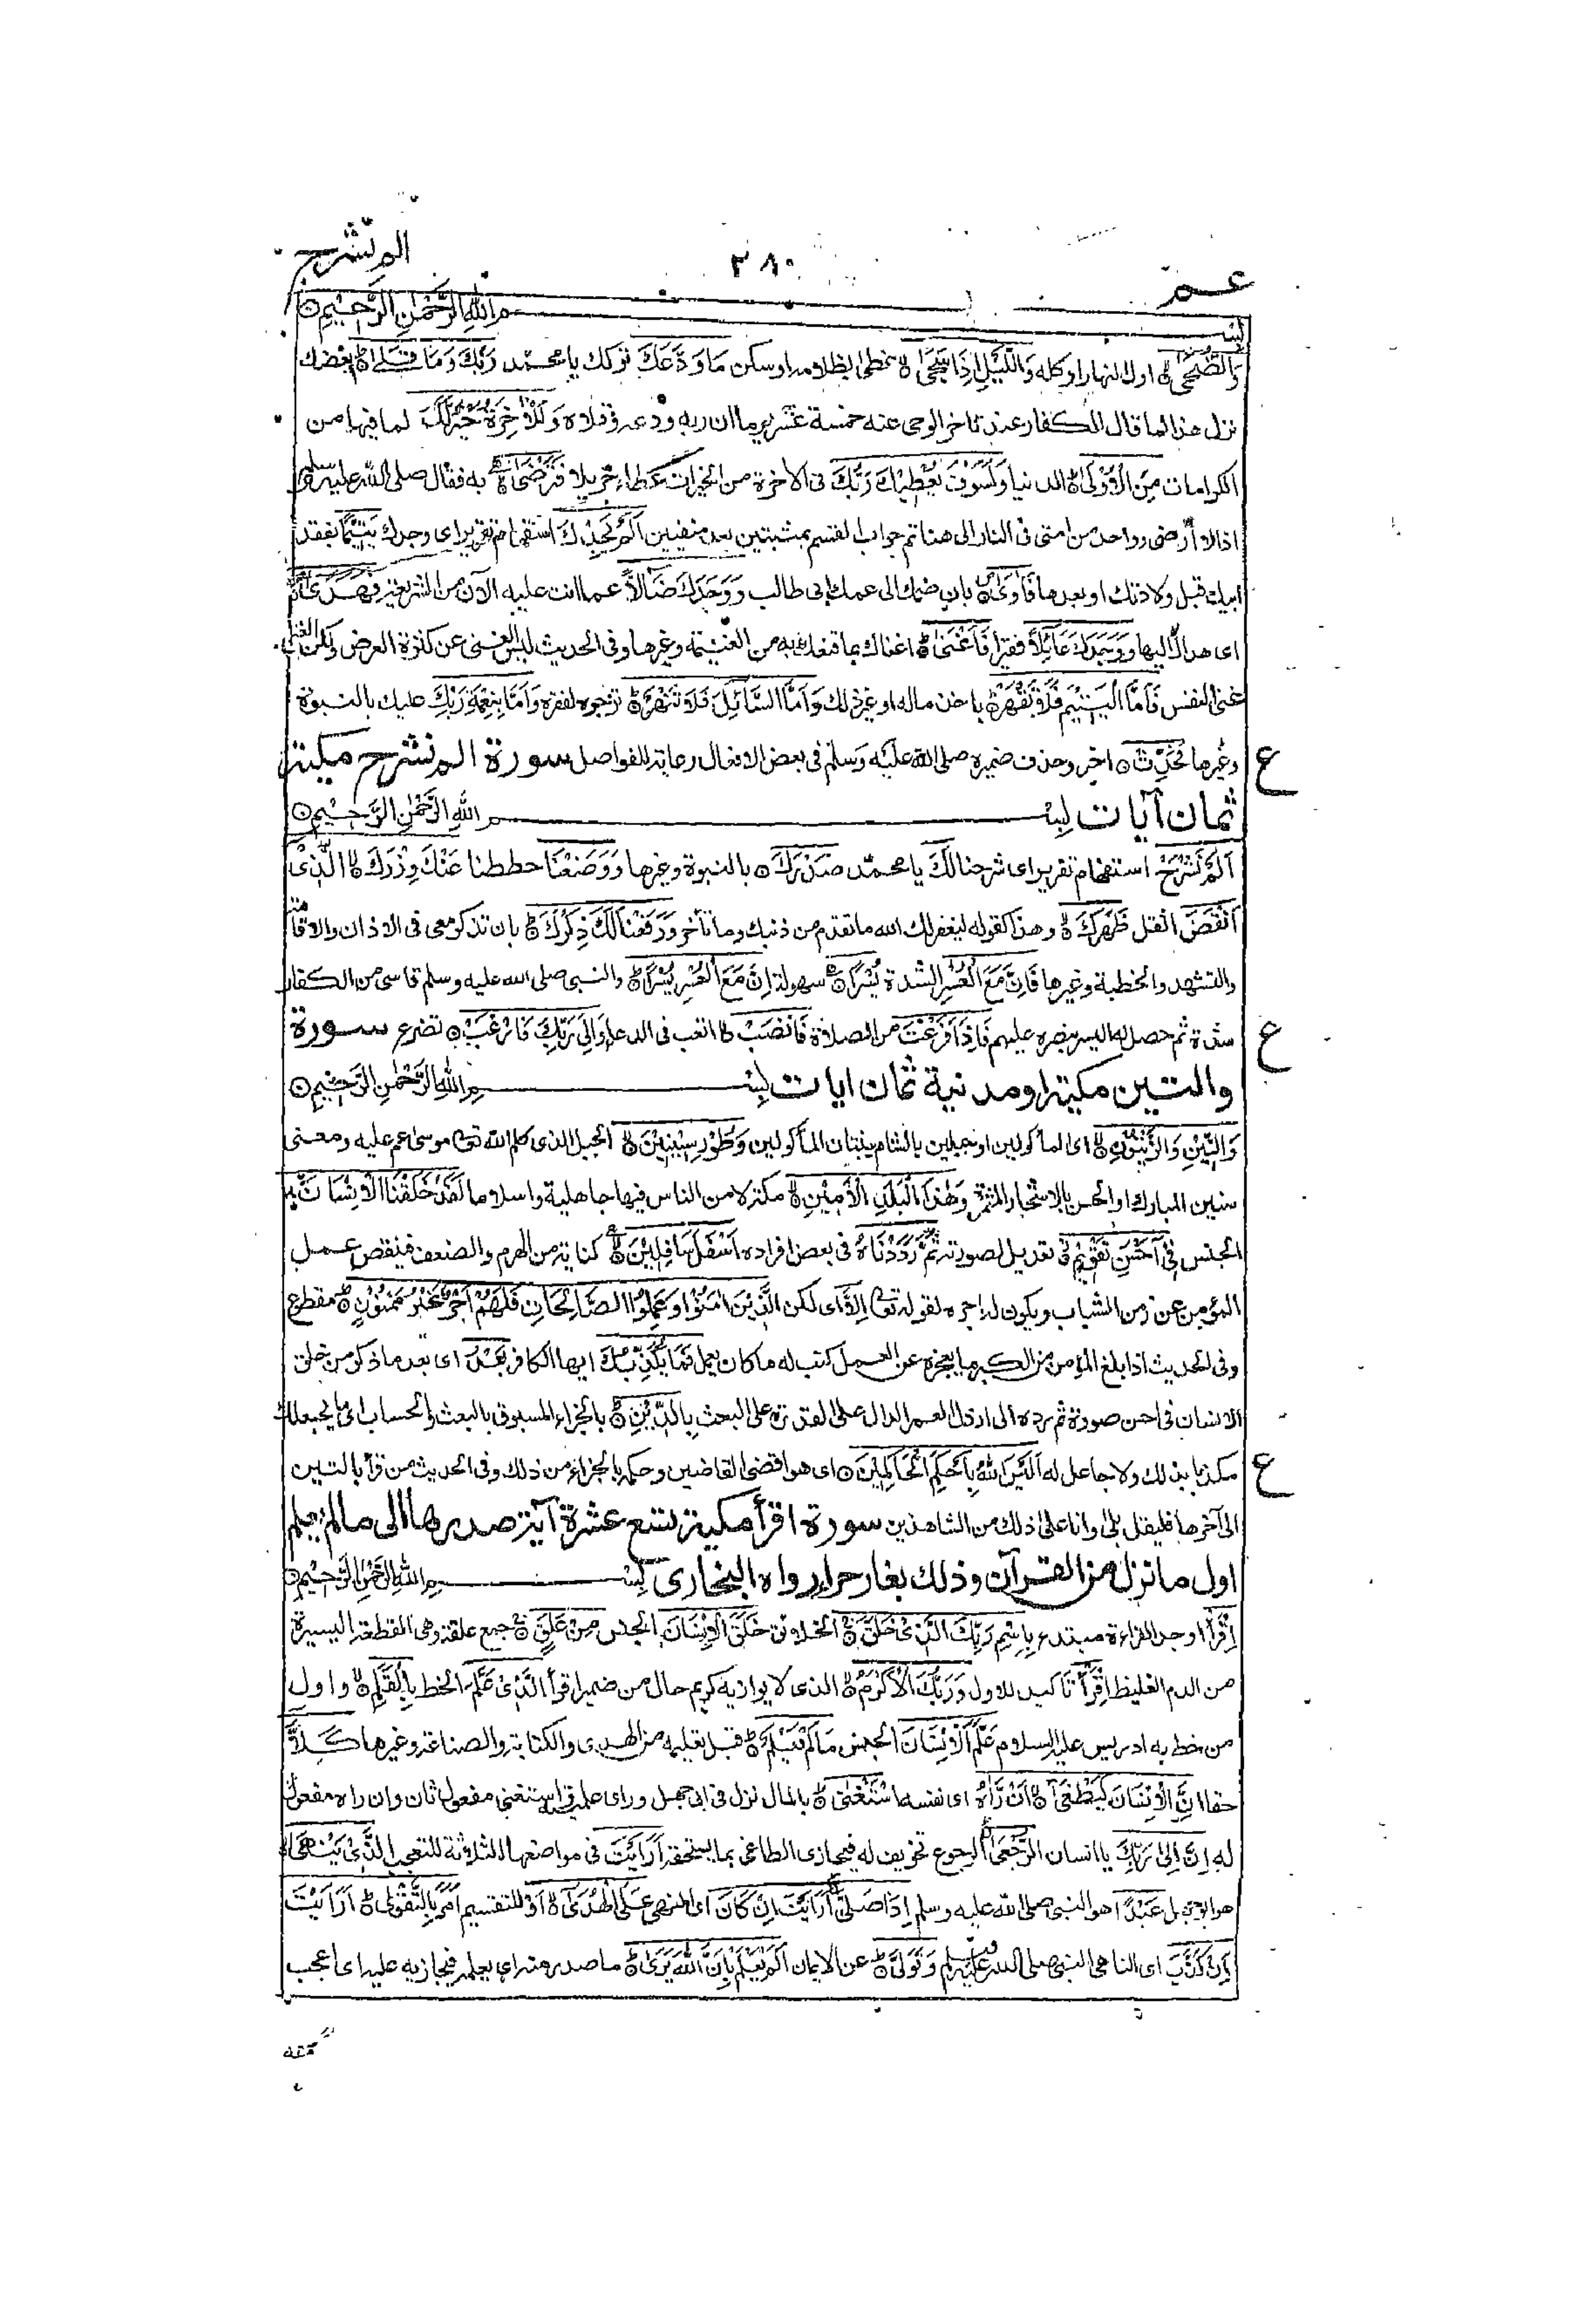 عم ٣٨٠ الم نشرح
بِسْمِ اللهِ الرَّحْمٰنِ الرَّحِيْمِ
وَالضُّحٰى اول النهار او كله وَاللَّيْلِ اِذَا سَجٰى غطى بظلامه او سكن مَا وَدَّعَكَ تركك يا محمد رَبُّكَ وَمَا قَلٰى ابغضك
نزل هذا لما قال الكفار عند تاخر الوحى عنه خمسة عشر يوما ان ربه ودعه وقلاه وَلَلْاٰخِرَةُ خَيْرٌ لَّكَ لما فيها من
الكرامات مِنَ الْاُوْلٰى الدنيا وَلَسَوْفَ يُعْطِيْكَ رَبُّكَ فى الاخرة من الخيرات عطاء جزيلا فَتَرْضٰى به فقال صلى الله عليه وسلم
اذا لا ارضى وواحد من امتى فى النار الى هنا تم جواب القسم بمثبتين بعد منفيين اَلَمْ يَجِدْكَ استفهام تقرير اى وجدك يَتِيْمًا بفقد
ابيك قبل ولادتك او بعدها فَاٰوٰى بان ضمك الى عمك ابى طالب وَوَجَدَكَ ضَالًّا عما انت عليه الآن من الشريعة فَهَدٰى
اى هداك اليها وَوَجَدَكَ عَائِلًا فقيرا فَاَغْنٰى اغناك بما قنعك به من الغنيمة وغيرها وفى الحديث ليس الغنى عن كثرة العرض ولكن الغنى
غنى النفس فَاَمَّا الْيَتِيْمَ فَلَا تَقْهَرْ باخذ ماله او غير ذلك وَاَمَّا السَّائِلَ فَلَا تَنْهَرْ تزجره لفقره وَاَمَّا بِنِعْمَةِ رَبِّكَ عليك بالنبوة
وغيرها فَحَدِّثْ اخبر وحذف ضميره صلى الله عليه وسلم فى بعض الافعال رعاية للفواصل سورة الم نشرح مكية
ع
ثمان آيات بِسْمِ اللهِ الرَّحْمٰنِ الرَّحِيْمِ
اَلَمْ نَشْرَحْ استفهام تقرير اى شرحنا لَكَ يا محمد صَدْرَكَ بالنبوة وغيرها وَوَضَعْنَا حططنا عَنْكَ وِزْرَكَ الَّذِىْ
اَنْقَضَ اثقل ظَهْرَكَ وهذا كقوله ليغفر لك الله ما تقدم من ذنبك وما تأخر وَرَفَعْنَا لَكَ ذِكْرَكَ بان تذكر معى فى الاذان والاقامة
والتشهد والخطبة وغيرها فَاِنَّ مَعَ الْعُسْرِ الشدة يُسْرًا سهولة اِنَّ مَعَ الْعُسْرِ يُسْرًا والنبى صلى الله عليه وسلم قاسى من الكفار
شدة ثم حصل له اليسر بنصره عليهم فَاِذَا فَرَغْتَ من الصلاة فَانْصَبْ اتعب فى الدعاء وَاِلٰى رَبِّكَ فَارْغَبْ تضرع سورة
ع
والتين مكية او مدنية ثمان ايات بِسْمِ اللهِ الرَّحْمٰنِ الرَّحِيْمِ
وَالتِّيْنِ وَالزَّيْتُوْنِ اى الماكولين او جبلين بالشام ينبتان المأكولين وَطُوْرِ سِيْنِيْنَ الجبل الذى كلم الله تع موسى عم عليه ومعنى
سنين المبارك او الحسن بالاشجار المثمرة وَهٰذَا الْبَلَدِ الْاَمِيْنِ مكة لامن الناس فيها جاهلية واسلاما لَقَدْ خَلَقْنَا الْاِنْسَانَ
الجنس فِىْ اَحْسَنِ تَقْوِيْمٍ تعديل لصورته ثُمَّ رَدَدْنَاهُ فى بعض افراده اَسْفَلَ سَافِلِيْنَ كناية من الهرم والضعف فينقص عمل
المؤمن عن زمن الشباب ويكون له اجره لقوله تع اِلَّا اى لكن الَّذِيْنَ اٰمَنُوْا وَعَمِلُوا الصَّالِحَاتِ فَلَهُمْ اَجْرٌ غَيْرُ مَمْنُوْنٍ مقطوع
وفى الحديث اذا بلغ المؤمن من الكبر ما يعجزه عن العمل كتب له ما كان يعمل فَمَا يُكَذِّبُكَ ايها الكافر بَعْدُ اى بعد ما ذكر من خلق
الانسان فى احسن صورة ثم رده الى ارذل العمر الدال على القدرة على البعث بِالدِّيْنِ بالجزاء المسبوق بالبعث والحساب اى ما يجعلك
مكذبا بذلك ولا جاعل له اَلَيْسَ اللهُ بِاَحْكَمِ الْحَاكِمِيْنَ اى هو اقضى القاضين وحكمه بالجزاء من ذلك وفى الحديث من قرأ بالتين
ع
الى آخرها فليقل بلى وانا على ذلك من الشاهدين سورة اقرأ مكية تسع عشرة آية صدرها الى مالم يعلم
اول ما نزل من القرآن وذلك بغار حراء رواه البخارى بِسْمِ اللهِ الرَّحْمٰنِ الرَّحِيْمِ
اِقْرَأْ اوجد القراءة مبتدء بِاسْمِ رَبِّكَ الَّذِىْ خَلَقَ الخلائق خَلَقَ الْاِنْسَانَ الجنس مِنْ عَلَقٍ جمع علقة وهى القطعة اليسيرة
من الدم الغليظ اِقْرَأْ تاكيد للاول وَرَبُّكَ الْاَكْرَمُ الذى لا يوازيه كريم حال من ضمير اقرأ الَّذِىْ عَلَّمَ الخط بِالْقَلَمِ واول
من خط به ادريس عليه السلام عَلَّمَ الْاِنْسَانَ الجنس مَا لَمْ يَعْلَمْ قبل تعليمه من الهدى والكتابة والصناعة وغيرها كَلَّا
حقا اِنَّ الْاِنْسَانَ لَيَطْغٰى اَنْ رَّاٰهُ اى نفسه اسْتَغْنٰى بالمال نزل فى ابى جهل وراى علمية استغنى مفعول ثان وان راه مفعول
له اِنَّ اِلٰى رَبِّكَ يا انسان الرُّجْعٰى الرجوع تخويف له فيجازى الطاغى بما يستحقه اَرَاَيْتَ فى مواضعها الثلاثة للتعجب الَّذِىْ يَنْهٰى
هو ابو جهل عَبْدًا هو النبى صلى الله عليه وسلم اِذَا صَلّٰى اَرَاَيْتَ اِنْ كَانَ اى المنهى عَلَى الْهُدٰى اَوْ للتقسيم اَمَرَ بِالتَّقْوٰى اَرَاَيْتَ
اِنْ كَذَّبَ اى الناهى النبى صلى الله عليه وسلم وَتَوَلّٰى عن الايمان اَلَمْ يَعْلَمْ بِاَنَّ اللهَ يَرٰى ما صدر منه اى يعلمه فيجازيه عليه اى اعجب